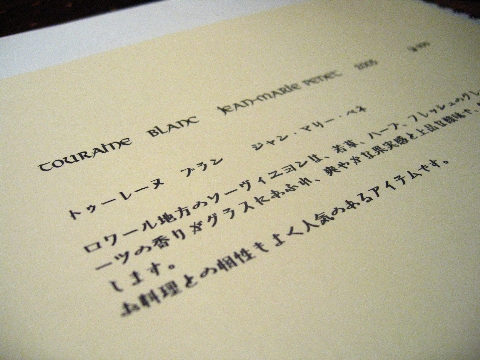 TOURAINE BLANC JEAN-MARIE PENET 2005
トゥーレーヌ ブラン ジャン・マリー・ペネ
ロワール地方のソーヴィニヨンは、若草、ハーブ、フレッシュのグレ
ーツの香りがグラスにあふれ、爽やかな果実感と上品な酸味で、
します。
お料理との相性もよく人気のあるアイテムです。